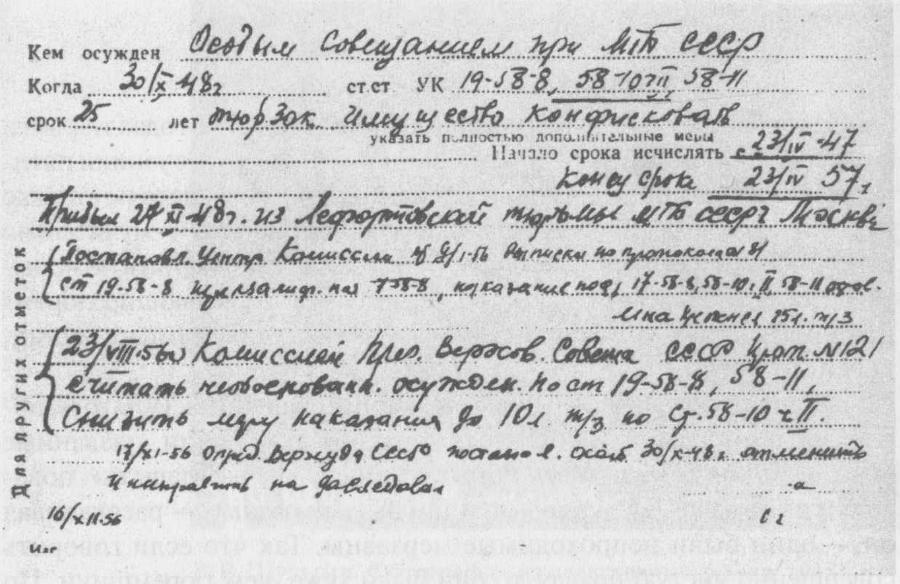 Кем осужден Особым совещанием при МГБ СССР
Когда 30/X-48г ст.ст УК 19-58-8, 58-10 ч II, 58-11
срок 25 лет тюр/зак. имущество конфисковать
указать полностью дополнительные меры
Начало срока исчислять с 23/IV-47
Конец срока 23/IV 57г
Прибыл 27 XI-48г. из Лефортовской тюрьмы МГБ СССР г Москвы
Постановл. Центр. Комиссии от выписки из протокола
ст 19-58-8 на 17-58-8, наказание по 17-58-8, 58-10 ч II, 58-11
25 л. т/з
23/VIII-56г Комиссией През. Верхов. Совета СССР прот. №121
считать необоснован. осужден. по ст 19-58-8, 58-11,
Снизить меру наказания до 10 л. т/з по ст. 58-10 ч II.
Опред. Верхсуда СССР постанов. 30/X-48г. отменить
и направить на доследован
16/XII-56
Для других отметок